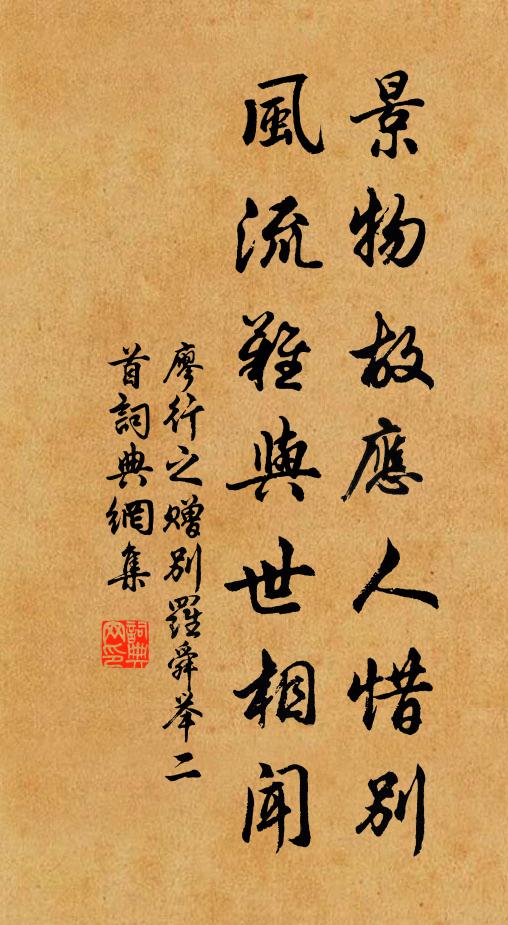 景物故應人惜別
風流難與世相聞
廖行之贈別羅舜举二
首詞典網集
詞典
网印